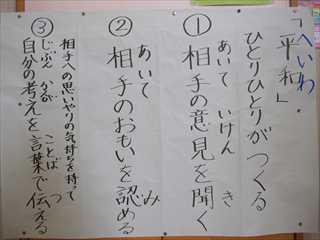 「平和」
へいわ
ひとりひとりがつくる
① 相手の意見を聞く
あいて いけん き
② 相手のおもいを認める
あいて みと
相手への思いやりの気持ちを持って
③ 自分の考えを言葉で伝える
じぶん かんが ことば つた